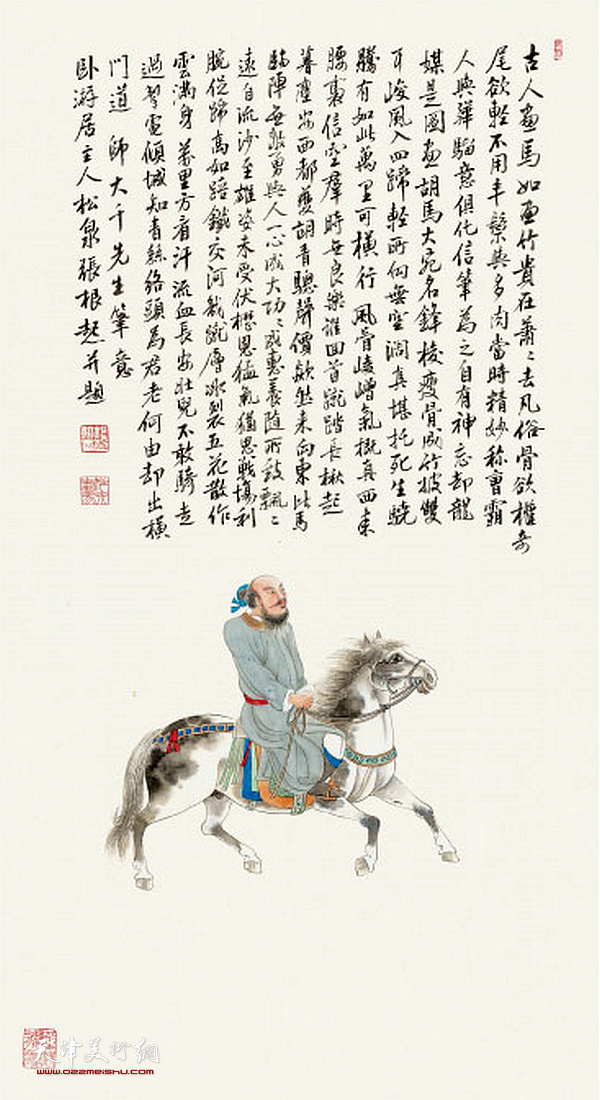 古人畫馬如畫竹貴在蕭〻去凡俗骨欲權奇
尾欲輕不用丰鬃與多肉當時精妙稱曹霸
人與驊騮意俱化信筆為之自有神忘却龍
媒是圖畫胡馬大宛名鋒棱瘦骨成竹披雙
耳峻風入四蹄輕所向無空闊真堪托死生驍
騰有如此萬里可橫行 風骨崚嶒氣概真西來
騕褭信空群時無良樂誰回首蹴踏長楸起
暮塵安西都護胡青驄聲價歘然來向東此馬
臨陣無敵勇與人一心成大功〻成惠養隨所致飄〻
遠自流沙至雄姿未受伏櫪恩猛氣猶思戰場利
腕促蹄高如踣鐵交河幾蹴層冰裂五花散作
雲滿身萬里方看汗流血長安壯兒不敢騎走
過掣電傾城知青絲絡頭為君老何由却出橫
門道 師大千先生筆意
臥游居主人松泉張根起并題
天津美术網
www.022meishu.com